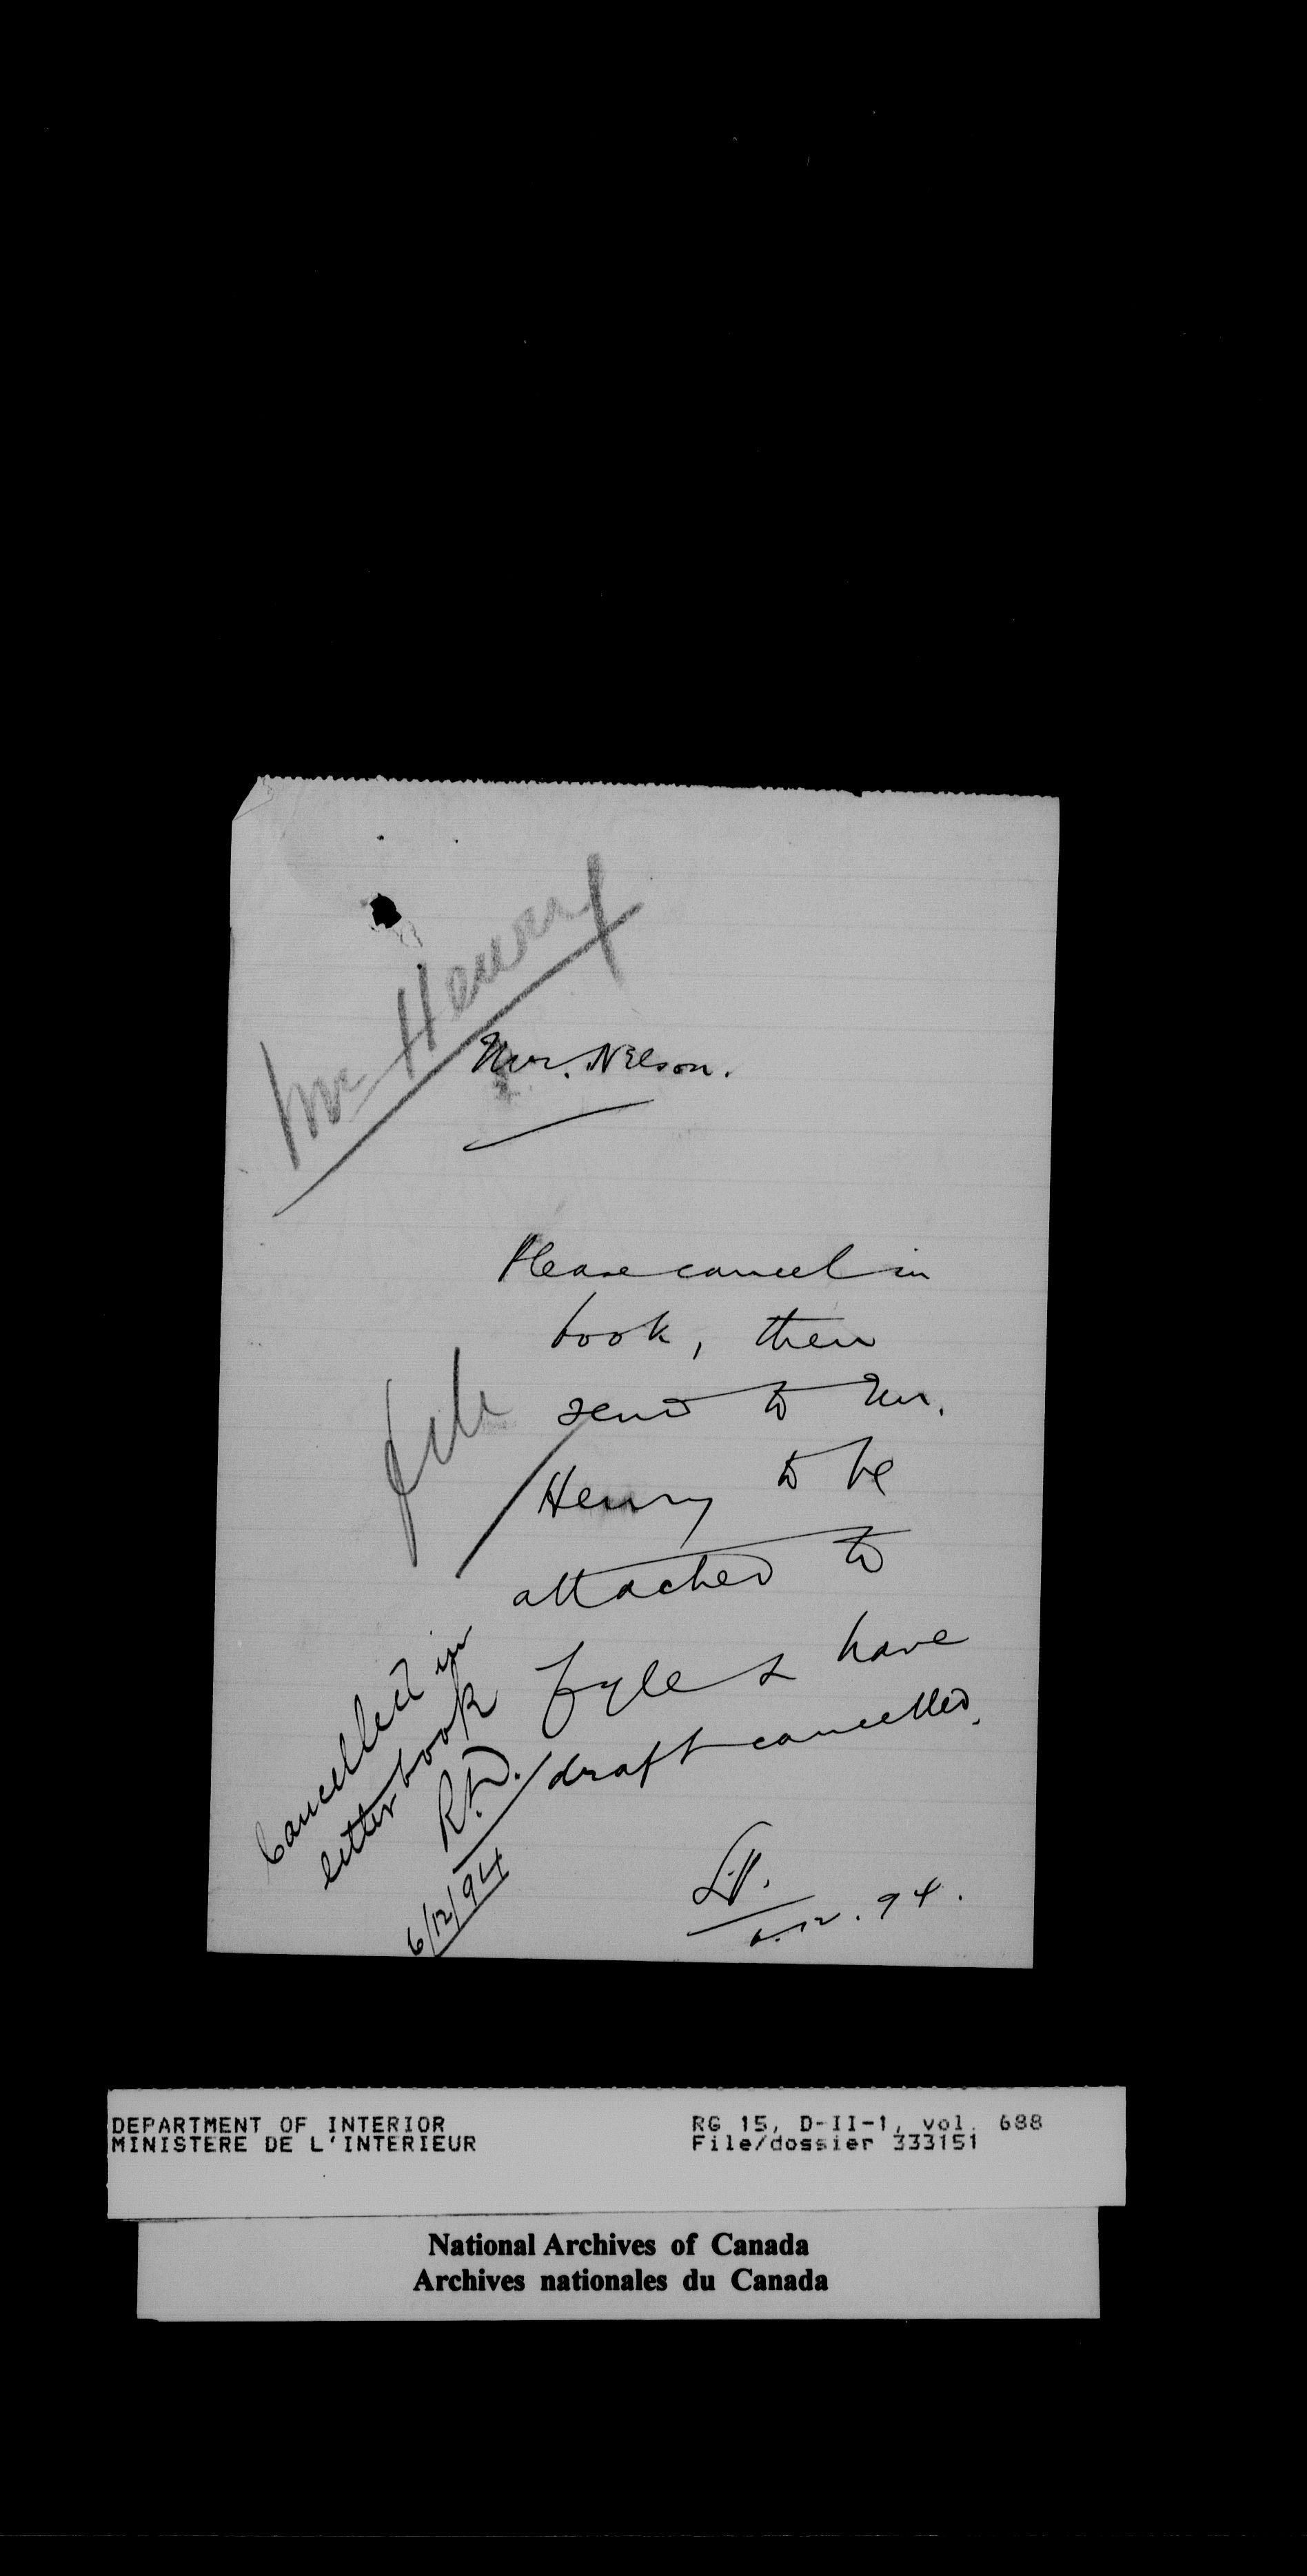 Mr Henry
Mr. Nelson.
Please cancel in
book, then
send to Mr.
Henry to be
attached to
fyle & have
draft cancelled.
6.12.94.
file
Cancelled in
letter book
6/12/94
DEPARTMENT OF INTERIOR
MINISTERE DE L'INTERIEUR
RG 15, D-II-1, vol. 688
File/dossier 333151
National Archives of Canada
Archives nationales du Canada